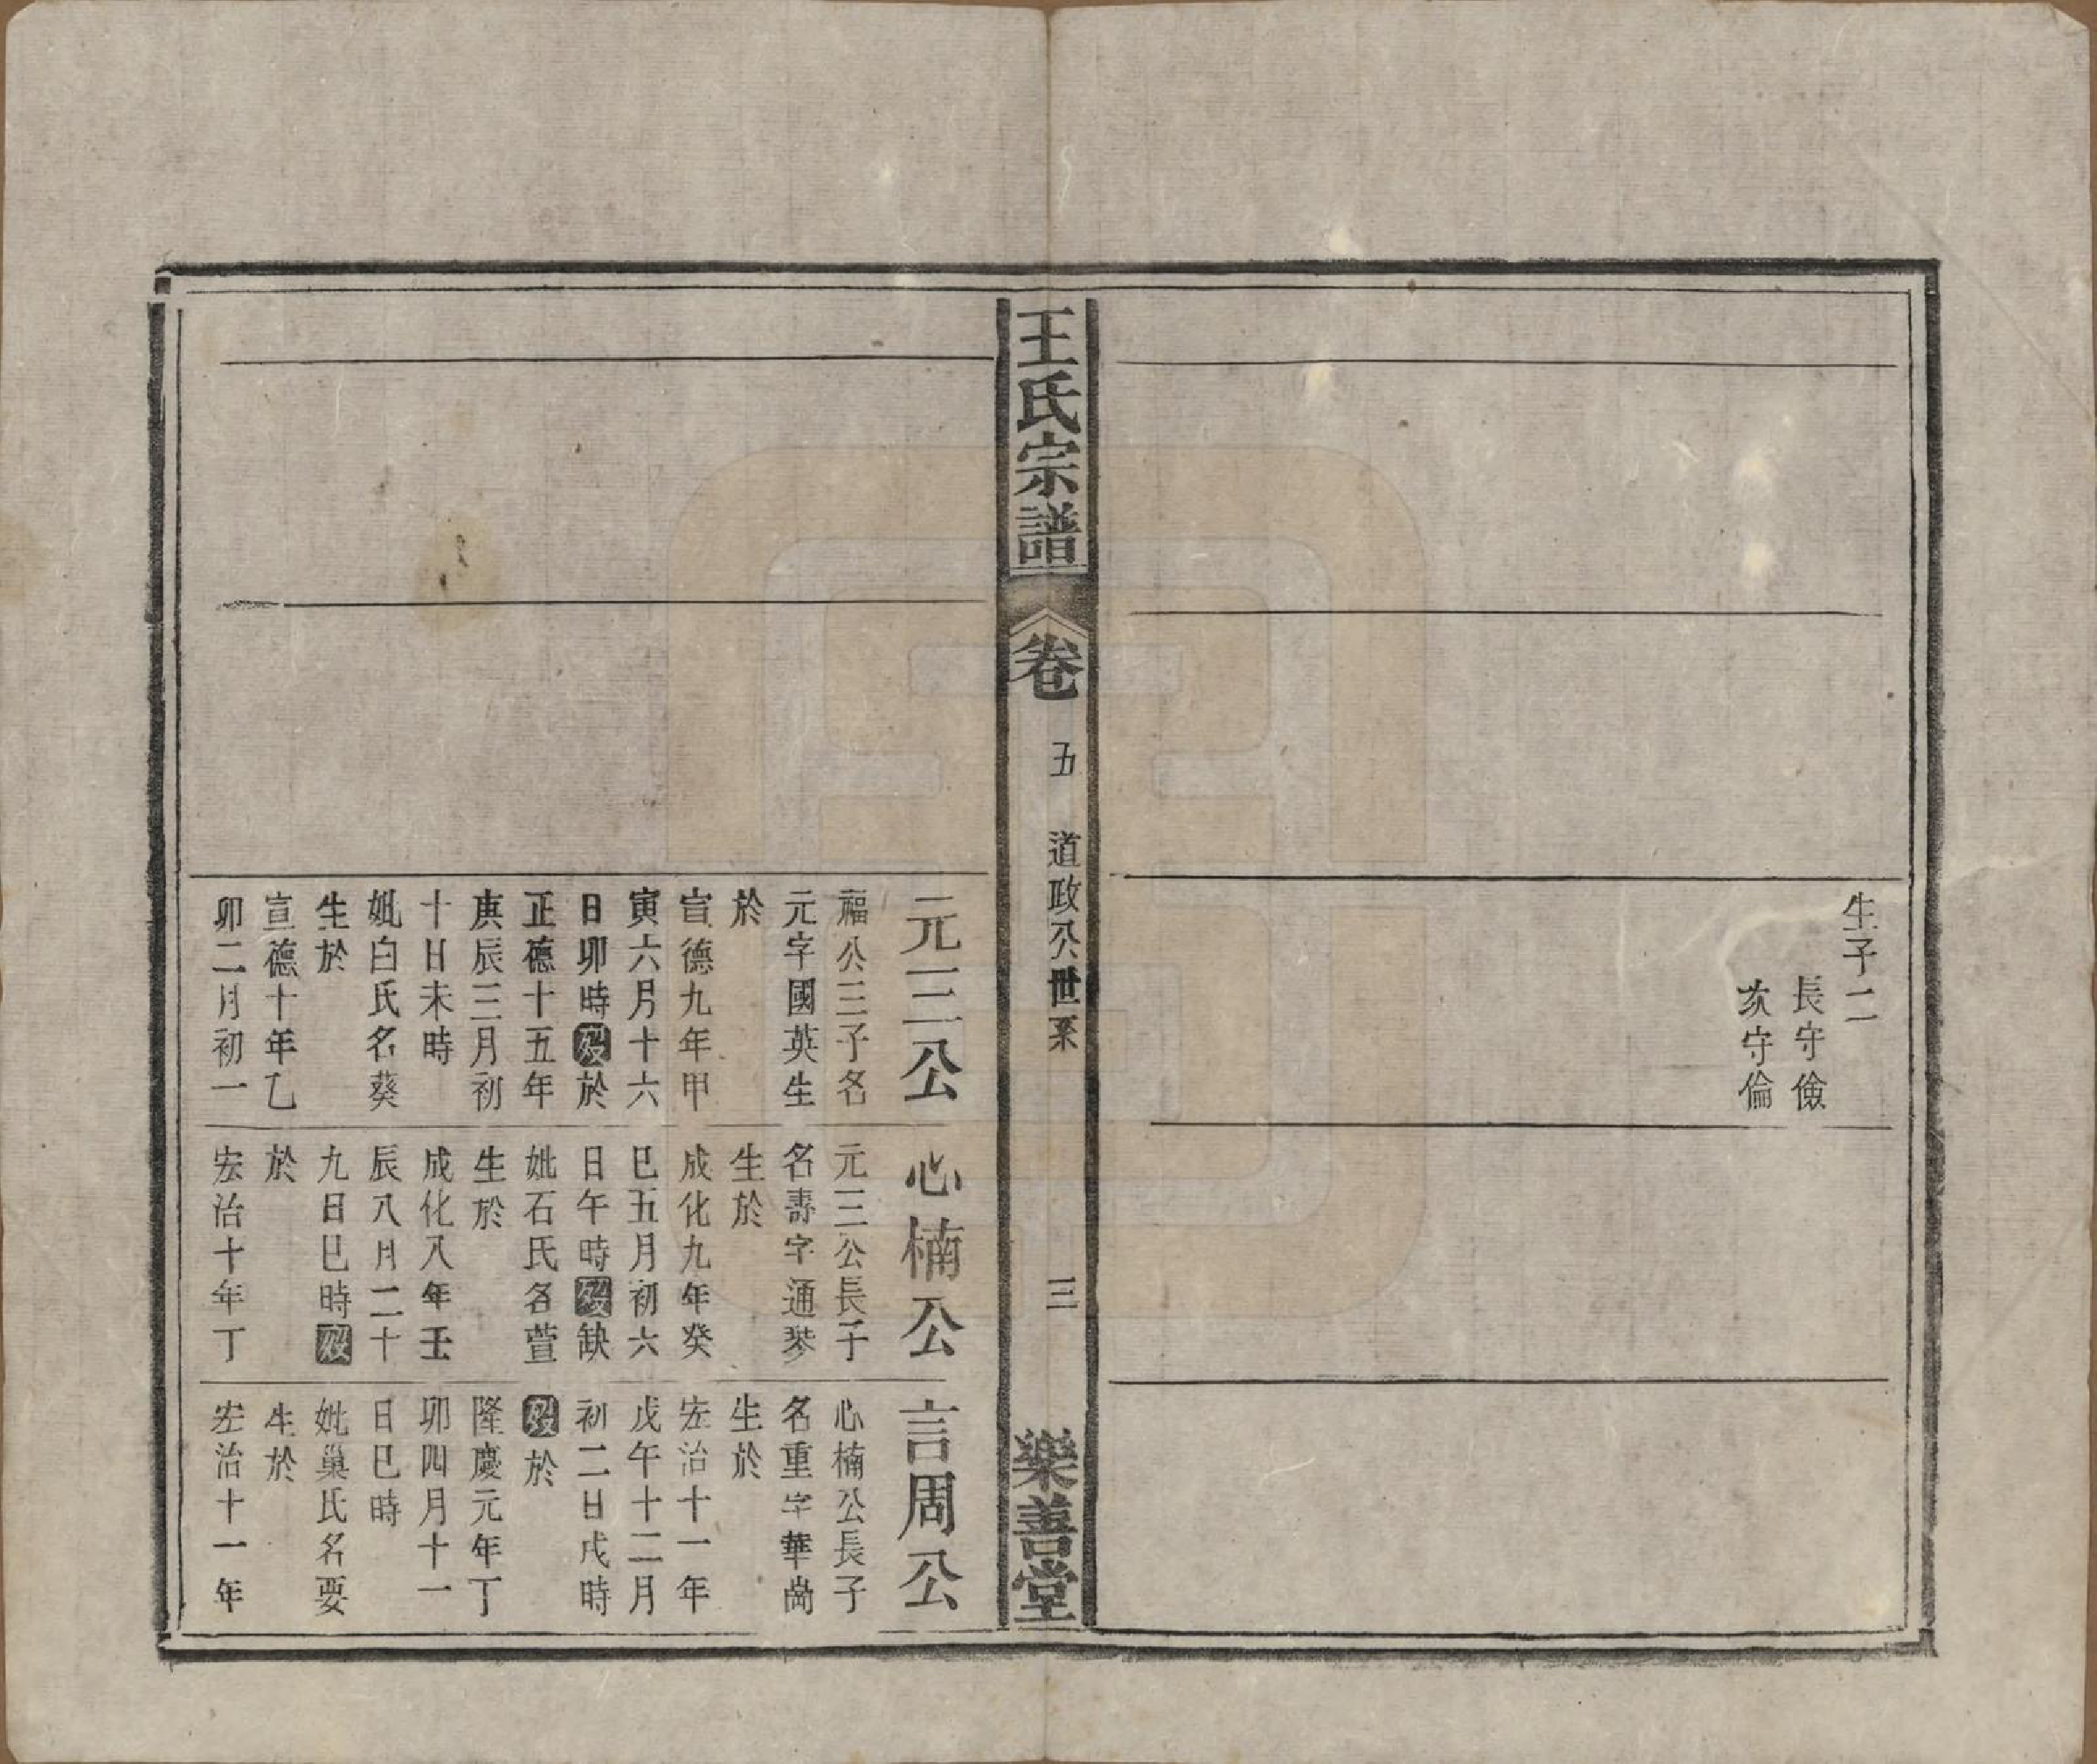 生子二
長守儉
次守倫
王氏宗譜
卷
五
道政公世系
三
樂善堂
元三公
福公三子名
元字國英生
於
宣德九年甲
寅六月十六
日卯時歿於
正德十五年
庚辰三月初
十日未時
妣白氏名葵
生於
宣德十年乙
卯二月初一
心楠公
元三公長子
名壽字通琴
生於
成化九年癸
巳五月初六
日午時歿缺
妣石氏名萱
生於
成化八年壬
辰八月二十
九日巳時歿
於
宏治十年丁
言周公
心楠公長子
名重字華尚
生於
宏治十一年
戊午十二月
初二日戌時
歿於
隆慶元年丁
卯四月十一
日巳時
妣巢氏名要
生於
宏治十一年